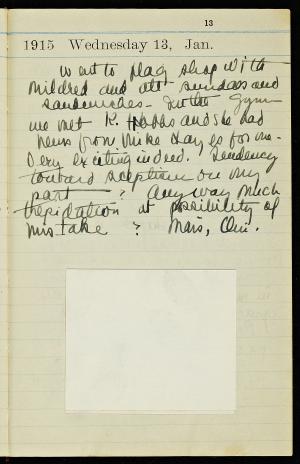 13
1915 Wednesday 13, Jan.
Went to play shop with
Mildred and ate sundaes and
sandwiches - In the Gym
we met K. Hobbs and she had
news from Mike Hayes for me.
Very exciting indeed. Tendency
toward scepticism on my
part - ? Any way much
trepidation at possibility of
mistake ? Mais, Oui.